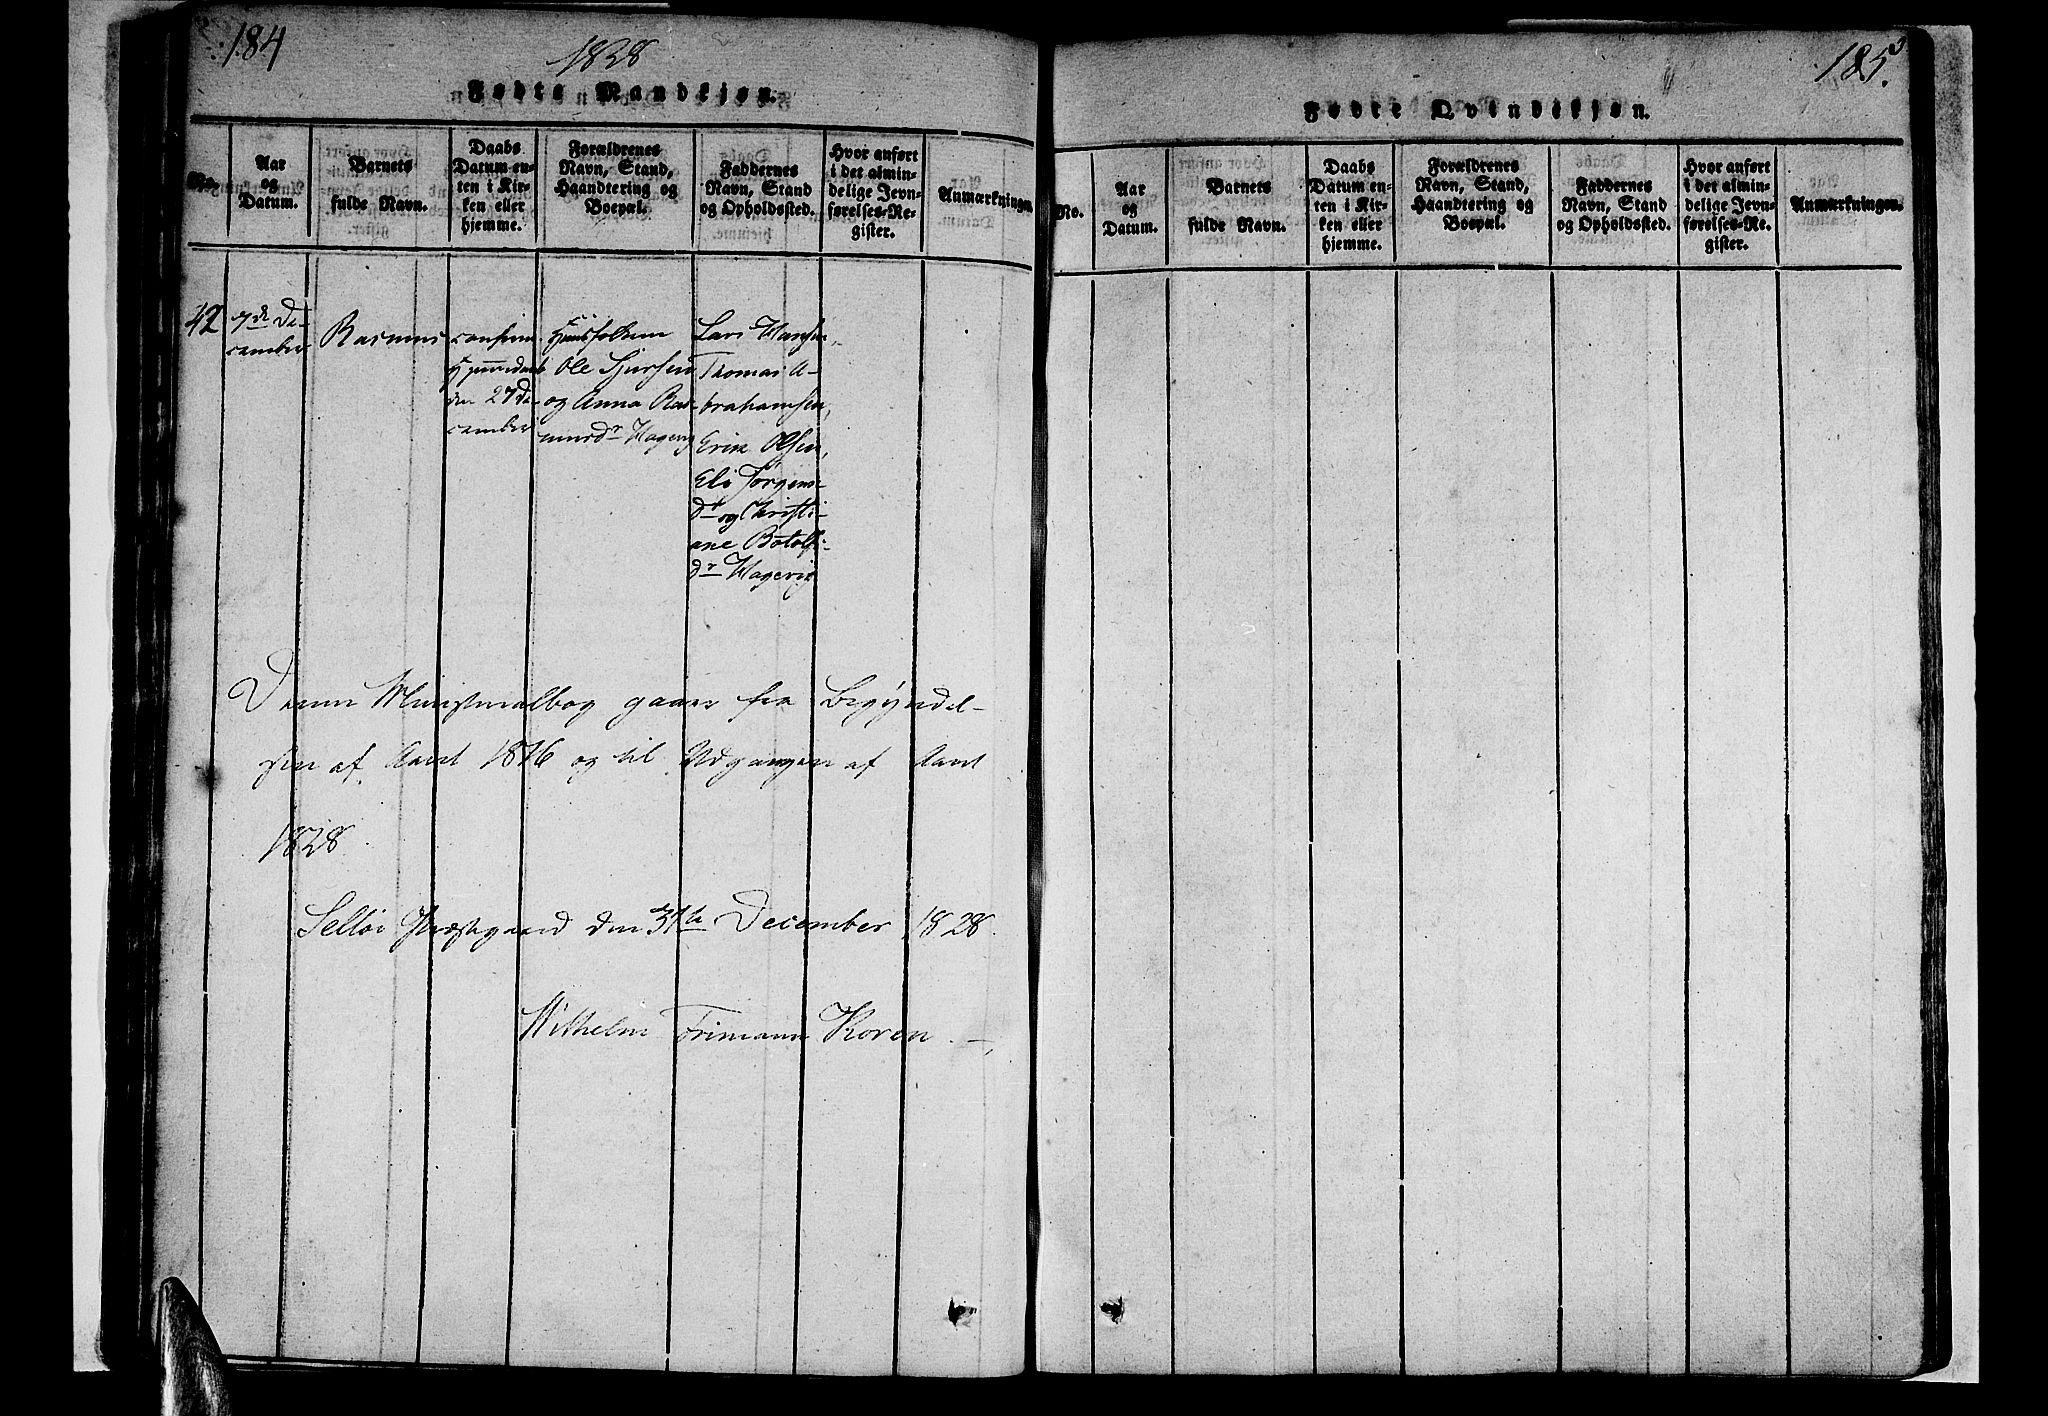 184
1828
Fødte Mandkjøn.
No.
Aar
og
Datum.
Barnets
fulde Navn.
Daabs
Datum en-
ten i Kir-
ken eller
hjemme.
Forældrenes
Navn, Stand,
Haandtering og
Boepæl.
Faddernes
Navn, Stand
og Opholdssted.
Hvor anført
i det almin-
delige Jevn-
førelses-Re-
gister.
Anmærkninger.
42
7de De-
cember
Rasmus
confirm.
Hjemmedaab
den 27 De-
cember
Huusfolkene
Ole Sjursen
og Anna Ras-
musdr Hagevig
Lars Hansen,
Thomas A-
brahamsen,
Erik Olsen,
Eli Jørgens-
dr og Christi-
ane Botolfs-
dr Hagevig
Denne Ministerialbog gaaer fra Begyndel-
sen af Aaret 1816 og til Udgangen af Aaret
1828.
Selløe Præstegaard den 31te December 1828.
Wilhelm Frimann Koren.
185.
Fødte Qvindekjøn.
No.
Aar
og
Datum.
Barnets
fulde Navn.
Daabs
Datum en-
ten i Kir-
ken eller
hjemme.
Forældrenes
Navn, Stand,
Haandtering og
Boepæl.
Faddernes
Navn, Stand
og Opholdssted.
Hvor anført
i det almin-
delige Jevn-
førelses-Re-
gister.
Anmærkninger.